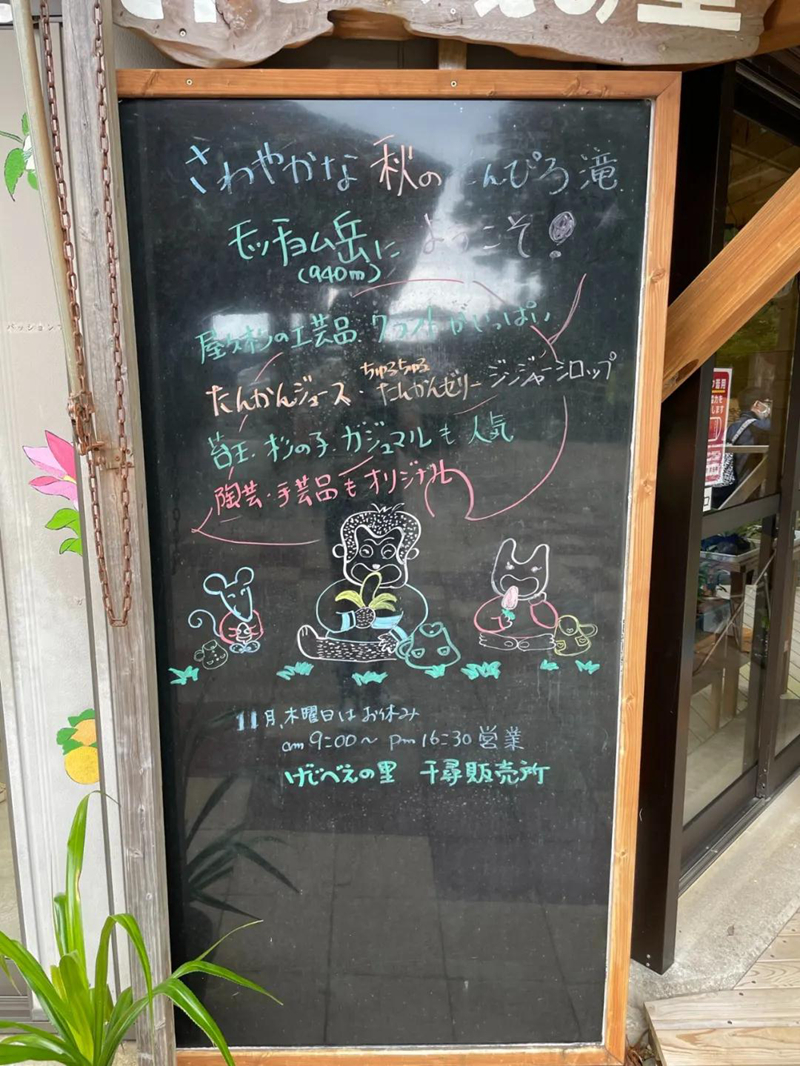 の里
さわやかな 秋の せんぴろ滝
モッチョム岳に ようこそ!
(940m)
屋久杉の工芸品、クラフトがいっぱい
たんかんジュース、ちゅるちゅるたんかんゼリー ジンジャーシロップ
苔玉、杉の子、ガジュマルも人気
陶芸・手芸品もオリジナル
11月、木曜日はお休み
am 9:00〜 pm 16:30 営業
げじべえの里 千尋販売所
パッション